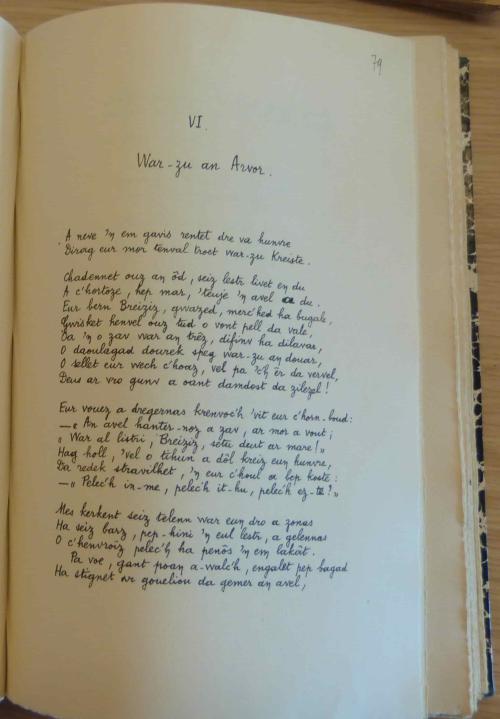 79
VI.
War-zu an Arvor.
A neve 'n em gavis rentet dre va hunvre
Dirag eur mor tenval troet war-zu Kreiste.
Chadennet ouz an ôd, seiz lestr livet en du
A c'hortoze, hep mar, 'teuje 'n avel a du.
Eur bern Breiziz, gwazed, merc'hed ha bugale,
Gwisket henvel ouz tud o vont pell da vale,
Oa 'n o zav war an trêz, difinv ha dilavar,
O daoulagad dourek speg war-zu an douar,
O sellet eur wech c'hoaz, vel pa 'z er da vervel,
Deus ar vro gunv a oant damdost da zilezel!
Eur vouez a dregernas krenvoc'h 'vit eur c'horn-boud:
—„ An avel hanter-noz a zav, ar mor a vout;
„ War al listri, Breiziz, setu deut ar mare!"
Hag holl, 'vel o tihun a dôl kreiz eun hunvre,
Da redek stravilhet, 'n eur c'houl a bep kostê:
—„ Pelec'h in-me, pelec'h it-hu, pelec'h ez-te?"
Mes kerkent seiz telenn war eun dro a zonas
Ha seiz barz, pep-hini 'n eul lestr, a gelennas
O c'henvroiz pelec'h ha penôs 'n em lakât.
Pa voe, gant poan a-walc'h, engalet pep bagad
Ha stignet ar goueliou da gemer an avel,